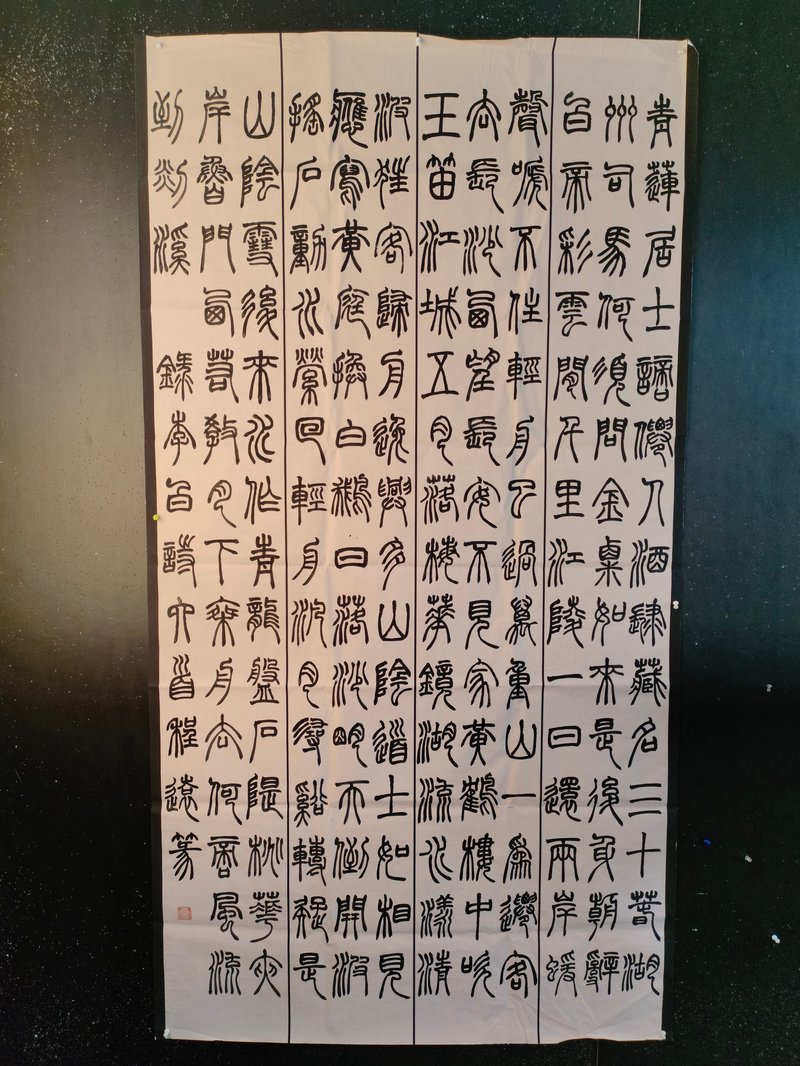 青蓮居士謫僊人酒肆藏名三十春湖
州司馬何須問金粟如來是後身朝辭
白帝彩雲閒千里江陵一日還兩岸猨
聲嗁不住輕舟已過萬重山一爲遷客
去長沙西望長安不見家黃鶴樓中吹
玉笛江城五月落梅華鏡湖流水漾清
波狂客歸舟逸興多山陰道士如相見
應寫黃庭換白鵝日落沙明天倒開波
搖石動水縈回輕舟汎月尋谿轉疑是
山陰雪後來水作青龍盤石隄桃華夾
岸魯門西若教月下乘舟去何啻風流
到剡溪 錄李白詩六首程遠篆